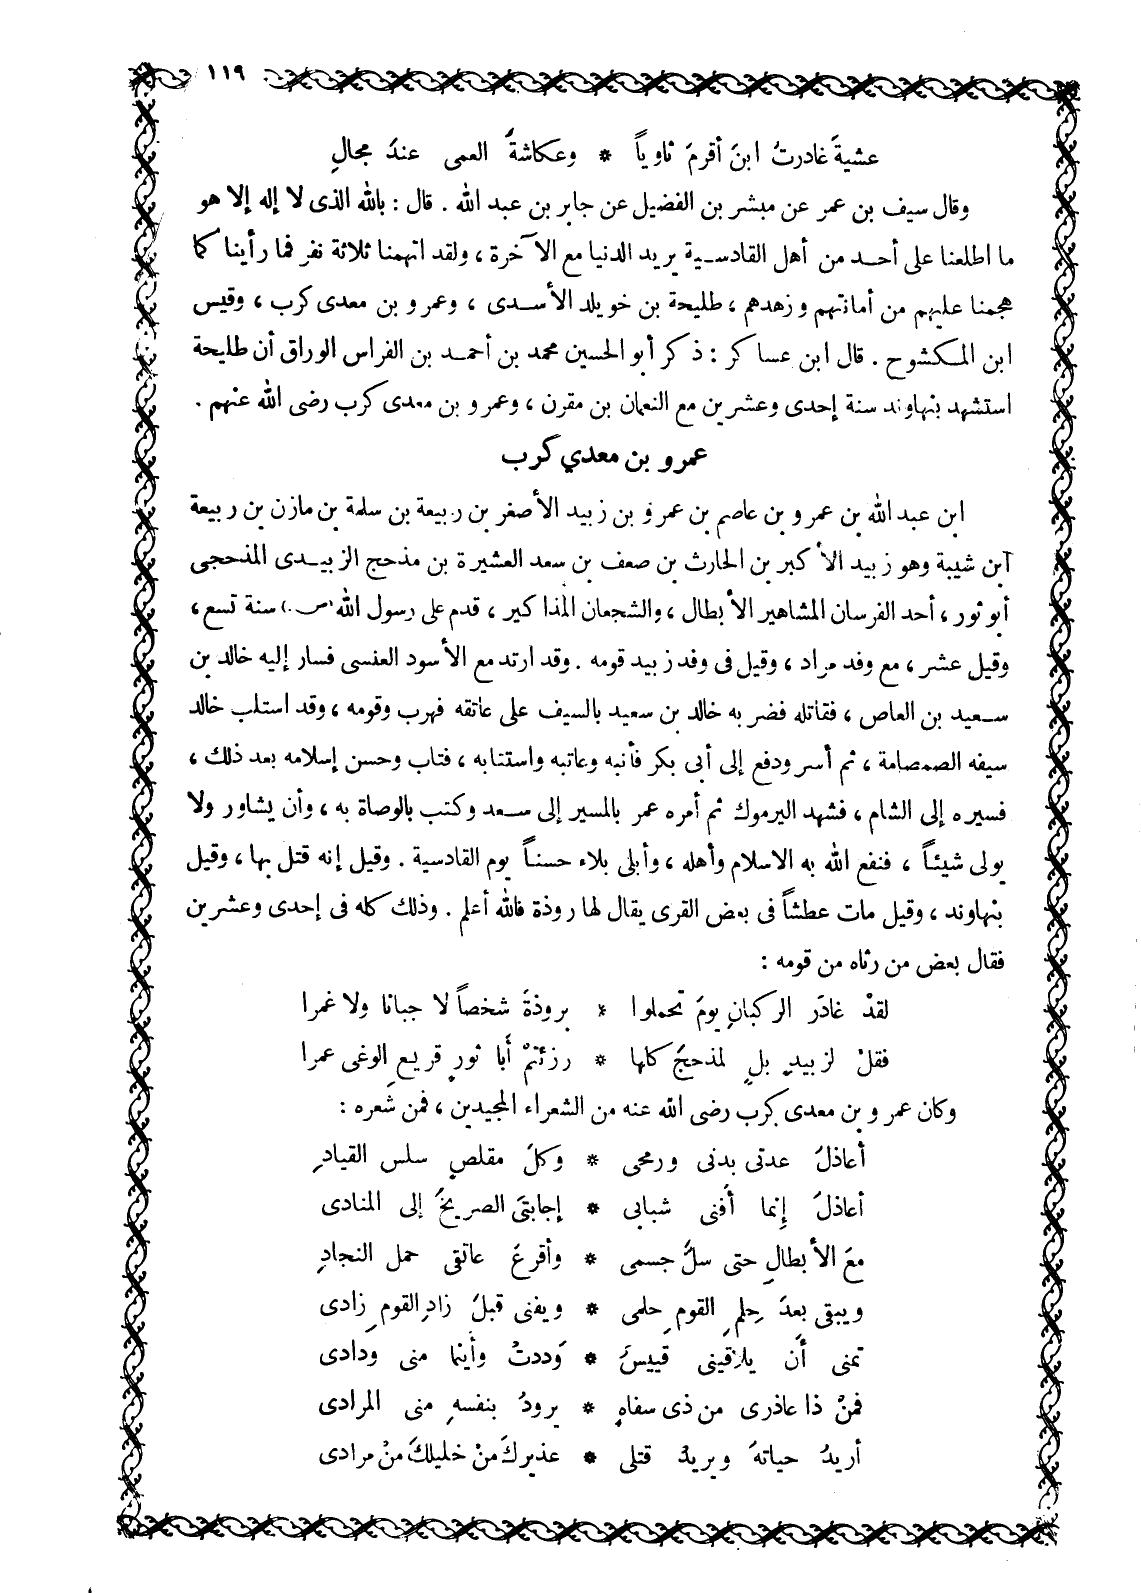 ١١٩
عشيةَ غادرتُ ابنَ أقرمَ ثاوياً * وعكاشةُ العمى عندَ مجالِ
وقال سيف بن عمر عن مبشر بن الفضيل عن جابر بن عبد الله . قال : بالله الذى لا إله إلا هو
ما اطلعنا على أحد من أهل القادسية يريد الدنيا مع الآخرة ، ولقد اتهمنا ثلاثة نفر فما رأينا كما
هجمنا عليهم من أمانتهم وزهدهم ، طليحة بن خويلد الأسدى ، وعمرو بن معدى كرب ، وقيس
ابن المكشوح . قال ابن عساكر : ذكر أبو الحسين محمد بن أحمد بن الفراس الوراق أن طليحة
استشهد بنهاوند سنة إحدى وعشرين مع النعمان بن مقرن ، وعمرو بن معدى كرب رضى الله عنهم .
عمرو بن معدي كرب
ابن عبد الله بن عمرو بن عاصم بن عمرو بن زبيد الأصغر بن ربيعة بن سلمة بن مازن بن ربيعة
ابن شيبة وهو زبيد الأكبر بن الحارث بن صعف بن سعد العشيرة بن مذحج الزبيدى المذحجى
أبو ثور ، أحد الفرسان المشاهير الأبطال ، والشجعان المذاكير ، قدم على رسول الله (ص) سنة تسع ،
وقيل عشر ، مع وفد مراد ، وقيل فى وفد زبيد قومه . وقد ارتد مع الأسود العنسى فسار إليه خالد بن
سعيد بن العاص ، فقاتله فضربه خالد بن سعيد بالسيف على عاتقه فهرب وقومه ، وقد استلب خالد
سيفه الصمصامة ، ثم أسر ودفع إلى أبى بكر فأنبه وعاتبه واستتابه ، فتاب وحسن إسلامه بعد ذلك ،
فسيره إلى الشام ، فشهد اليرموك ثم أمره عمر بالمسير إلى سعد وكتب بالوصاة به ، وأن يشاور ولا
يولى شيئاً ، فنفع الله به الاسلام وأهله ، وأبلى بلاء حسناً يوم القادسية . وقيل إنه قتل بها ، وقيل
بنهاوند ، وقيل مات عطشاً فى بعض القرى يقال لها روذة فالله أعلم . وذلك كله فى إحدى وعشرين
فقال بعض من رثاه من قومه :
لقدْ غادَر الركبانِ يومَ تحملوا * بروذةَ شخصاً لا جبانا ولا غمرا
فقلْ لزبيدٍ بلٍ لمذحجَ كلها * رزئتمْ أبا ثورٍ قريعِ الوغى عمرا
وكان عمرو بن معدى كرب رضى الله عنه من الشعراء المجيدين ، فمن شعره :
أعاذلُ عدتى بدنى ورمحى * وكلَ مقلصٍ سلس القيادِ
أعاذلُ إنما أفنى شبابى * إجابتىَ الصريخَ إلى المنادى
معَ الأبطالِ حتى سلَّ جسمى * وأقرعَ عاتقى حمل النجادِ
ويبقى بعدَ حِلمِ القومِ حلمى * ويفنى قبلَ زادِ القومِ زادى
تمنى أن يلاقينى قييسُ * وَددتُ وأينما منى ودادى
فمنْ ذا عاذرى من ذى سفاهٍ * يرودُ بنفسهِ منى المرادى
أريدُ حياتهَ ويريدُ قتلى * عذيركَ منْ خليلكَ منْ مرادى